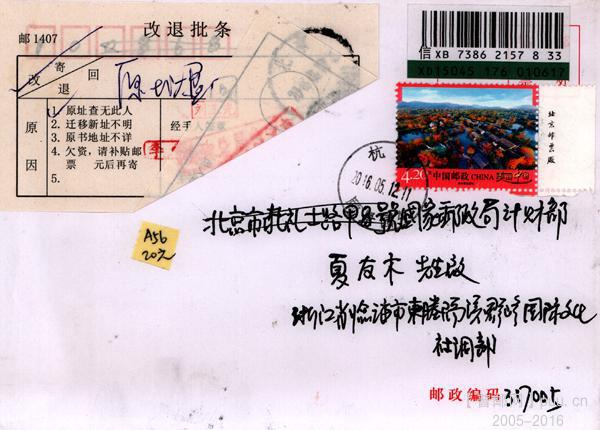 邮1407
改退批条
改寄
退回
原址退
原因
1. 原址查无此人
2. 迁移新址不明
3. 原书地址不详
4. 欠资，请补贴邮
票 元后再寄
5.
经手人
信 XB 7386 2157 8 33
XB15045 176 010617
4.20
中国邮政 CHINA
北京邮票厂
杭
2016.05.12.17
A56
20元
北京市 礼士路甲8号国家邮政局计财部
夏友木 先生启
浙江省临海市
国际文化
社调部
邮政编码 317005
.cn
2005-2016